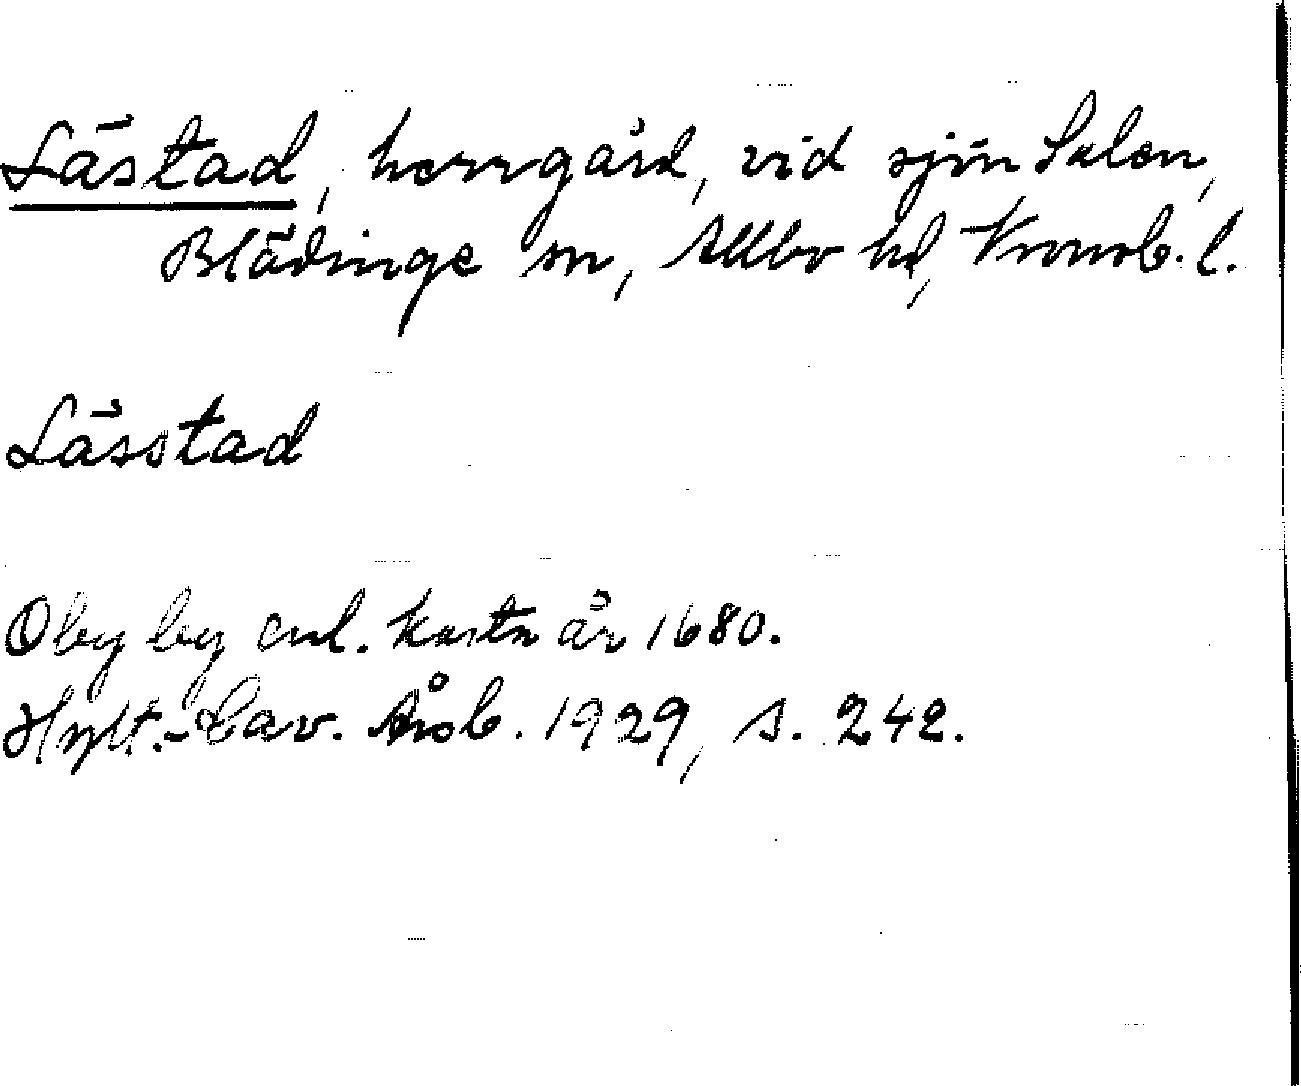 Lästad, herrgård, vid sjön Salen,
Blädinge sn, Allbo hd, Kronob. l.
Lässtad
Oby by enl. karta år 1680.
Hylt.-Cav. Årsb. 1929, s. 242.